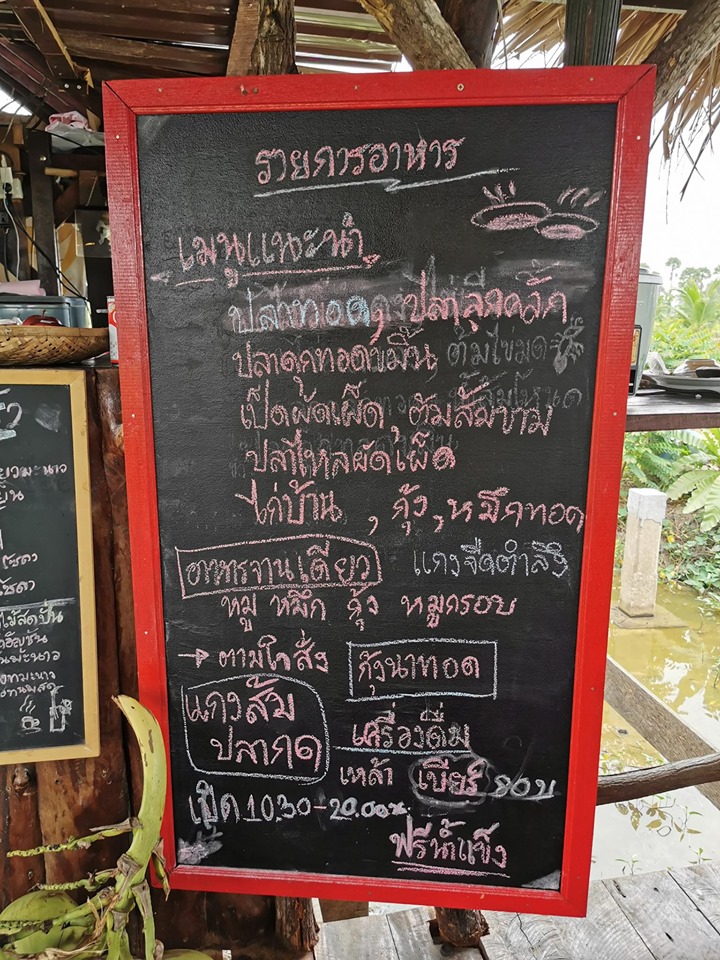 รายการอาหาร
เมนูแนะนำ
ปลาทอด, ปลาลุกคลั๊ก
ปลาดุกทอดขมิ้น ต้มไข่มด
เป็ดผัดเผ็ด, ต้มส้มขาม
ปลาไหลผัดเผ็ด
ไก่บ้าน, กุ้ง, หมึกทอด
อาหารจานเดียว แกงจืดตำลึง
หมู หมึก กุ้ง หมูกรอบ
→ ตามใจสั่ง กุ้งนาทอด
แกงส้ม
ปลากด
เครื่องดื่ม
เหล้า เบียร์
เปิด 10.30-20.00
ฟรีน้ำแข็ง
โซดา